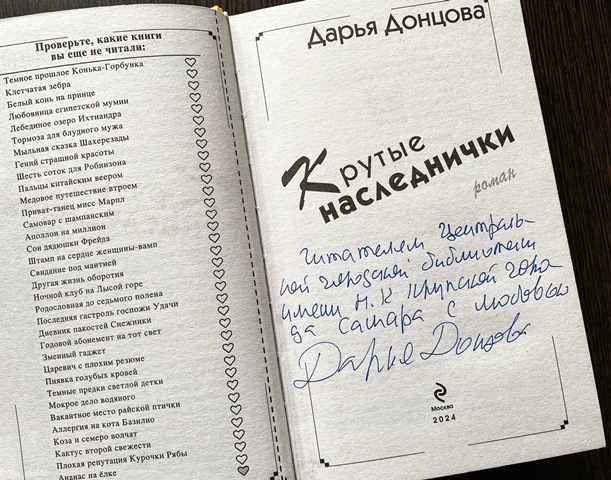 Проверьте, какие книги
вы еще не читали:
Темное прошлое Конька-Горбунка
Клетчатая зебра
Белый конь на принце
Любовница египетской мумии
Лебединое озеро Ихтиандра
Тормоза для блудного мужа
Мыльная сказка Шахерезады
Гений страшной красоты
Шесть соток для Робинзона
Пальцы китайским веером
Медовое путешествие втроем
Приват-танец мисс Марпл
Самовар с шампанским
Аполлон на миллион
Сон дядюшки Фрейда
Штамп на сердце женщины-вамп
Свидание под мантией
Другая жизнь оборотня
Ночной клуб на Лысой горе
Родословная до седьмого полена
Последняя гастроль госпожи Удачи
Дневник пакостей Снежинки
Годовой абонемент на тот свет
Змеиный гаджет
Царевич с плохим резюме
Пиявка голубых кровей
Темные предки светлой детки
Мокрое дело водяного
Вакантное место райской птички
Аллергия на кота Базилио
Коза и семеро волчат
Кактус второй свежести
Плохая репутация Курочки Рябы
Ананас на ёлке
Дарья Донцова
Крутые
наследнички
роман
Читателем Централь-
ной городской библиотеки
имени Н.К Крупской горо
да Самара с любовью
Дарья Донцова
Москва
2024